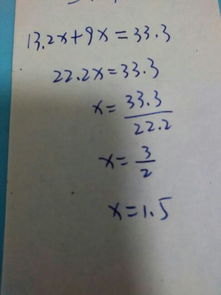 13.2x+9x=33.3
22.2x=33.3
x=33.3/22.2
x=3/2
x=1.5